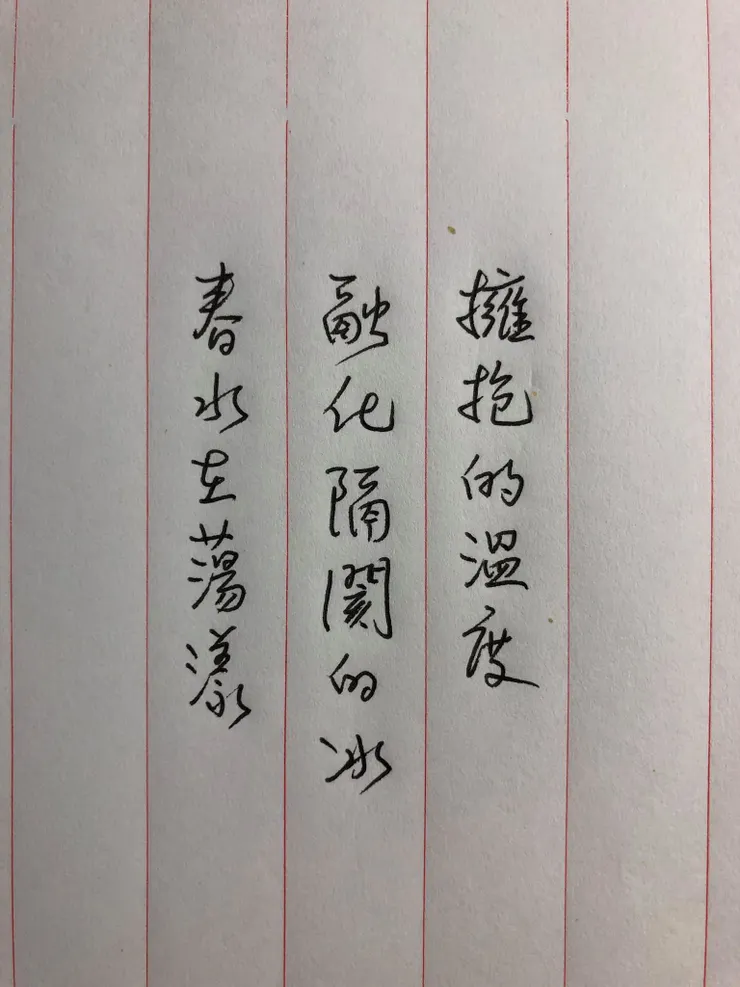 擁抱的溫度
融化隔閡的冰
春水在蕩漾